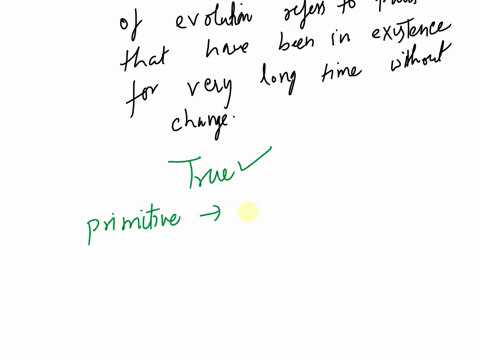 of evolution refers to
that have been in existence
for very long time without
change.
True ✓
primitive →